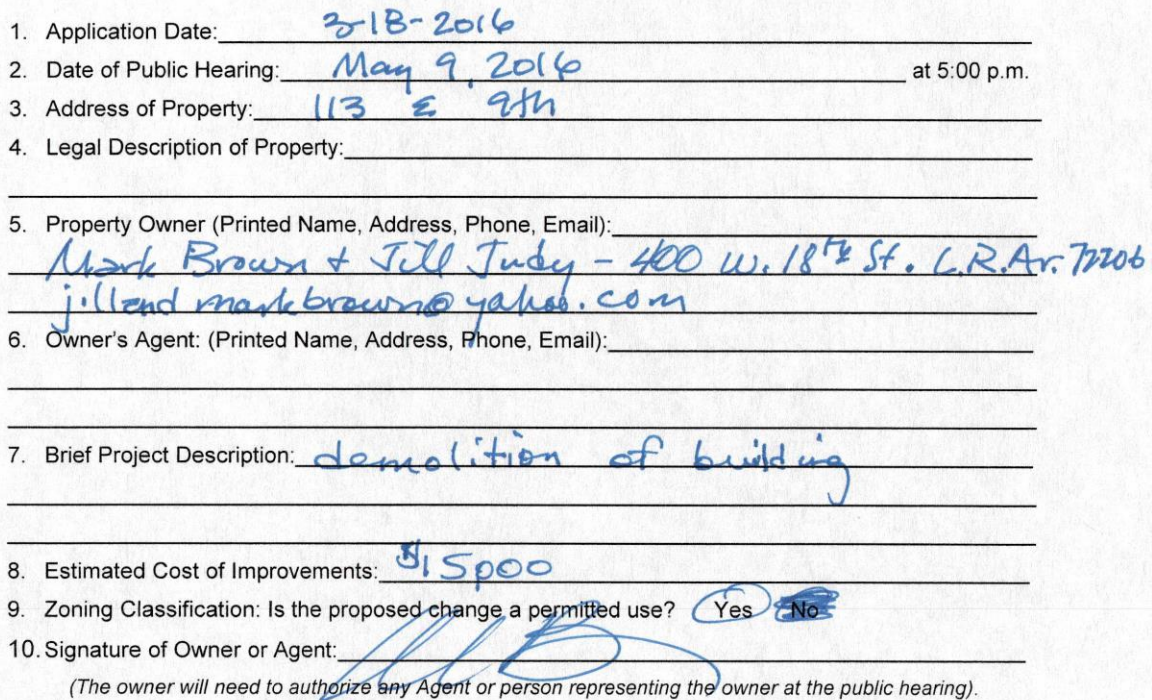 1. Application Date: 3-18-2016
2. Date of Public Hearing: May 9, 2016 at 5:00 p.m.
3. Address of Property: 113 E 9th
4. Legal Description of Property:
5. Property Owner (Printed Name, Address, Phone, Email):
Mark Brown + Jill Judy - 400 W. 18th St. L.R. Ar. 72206
jillandmarkbrown@yahoo.com
6. Owner's Agent: (Printed Name, Address, Phone, Email):
7. Brief Project Description: demolition of building
8. Estimated Cost of Improvements: $15,000
9. Zoning Classification: Is the proposed change a permitted use? Yes No
10. Signature of Owner or Agent:
(The owner will need to authorize any Agent or person representing the owner at the public hearing).